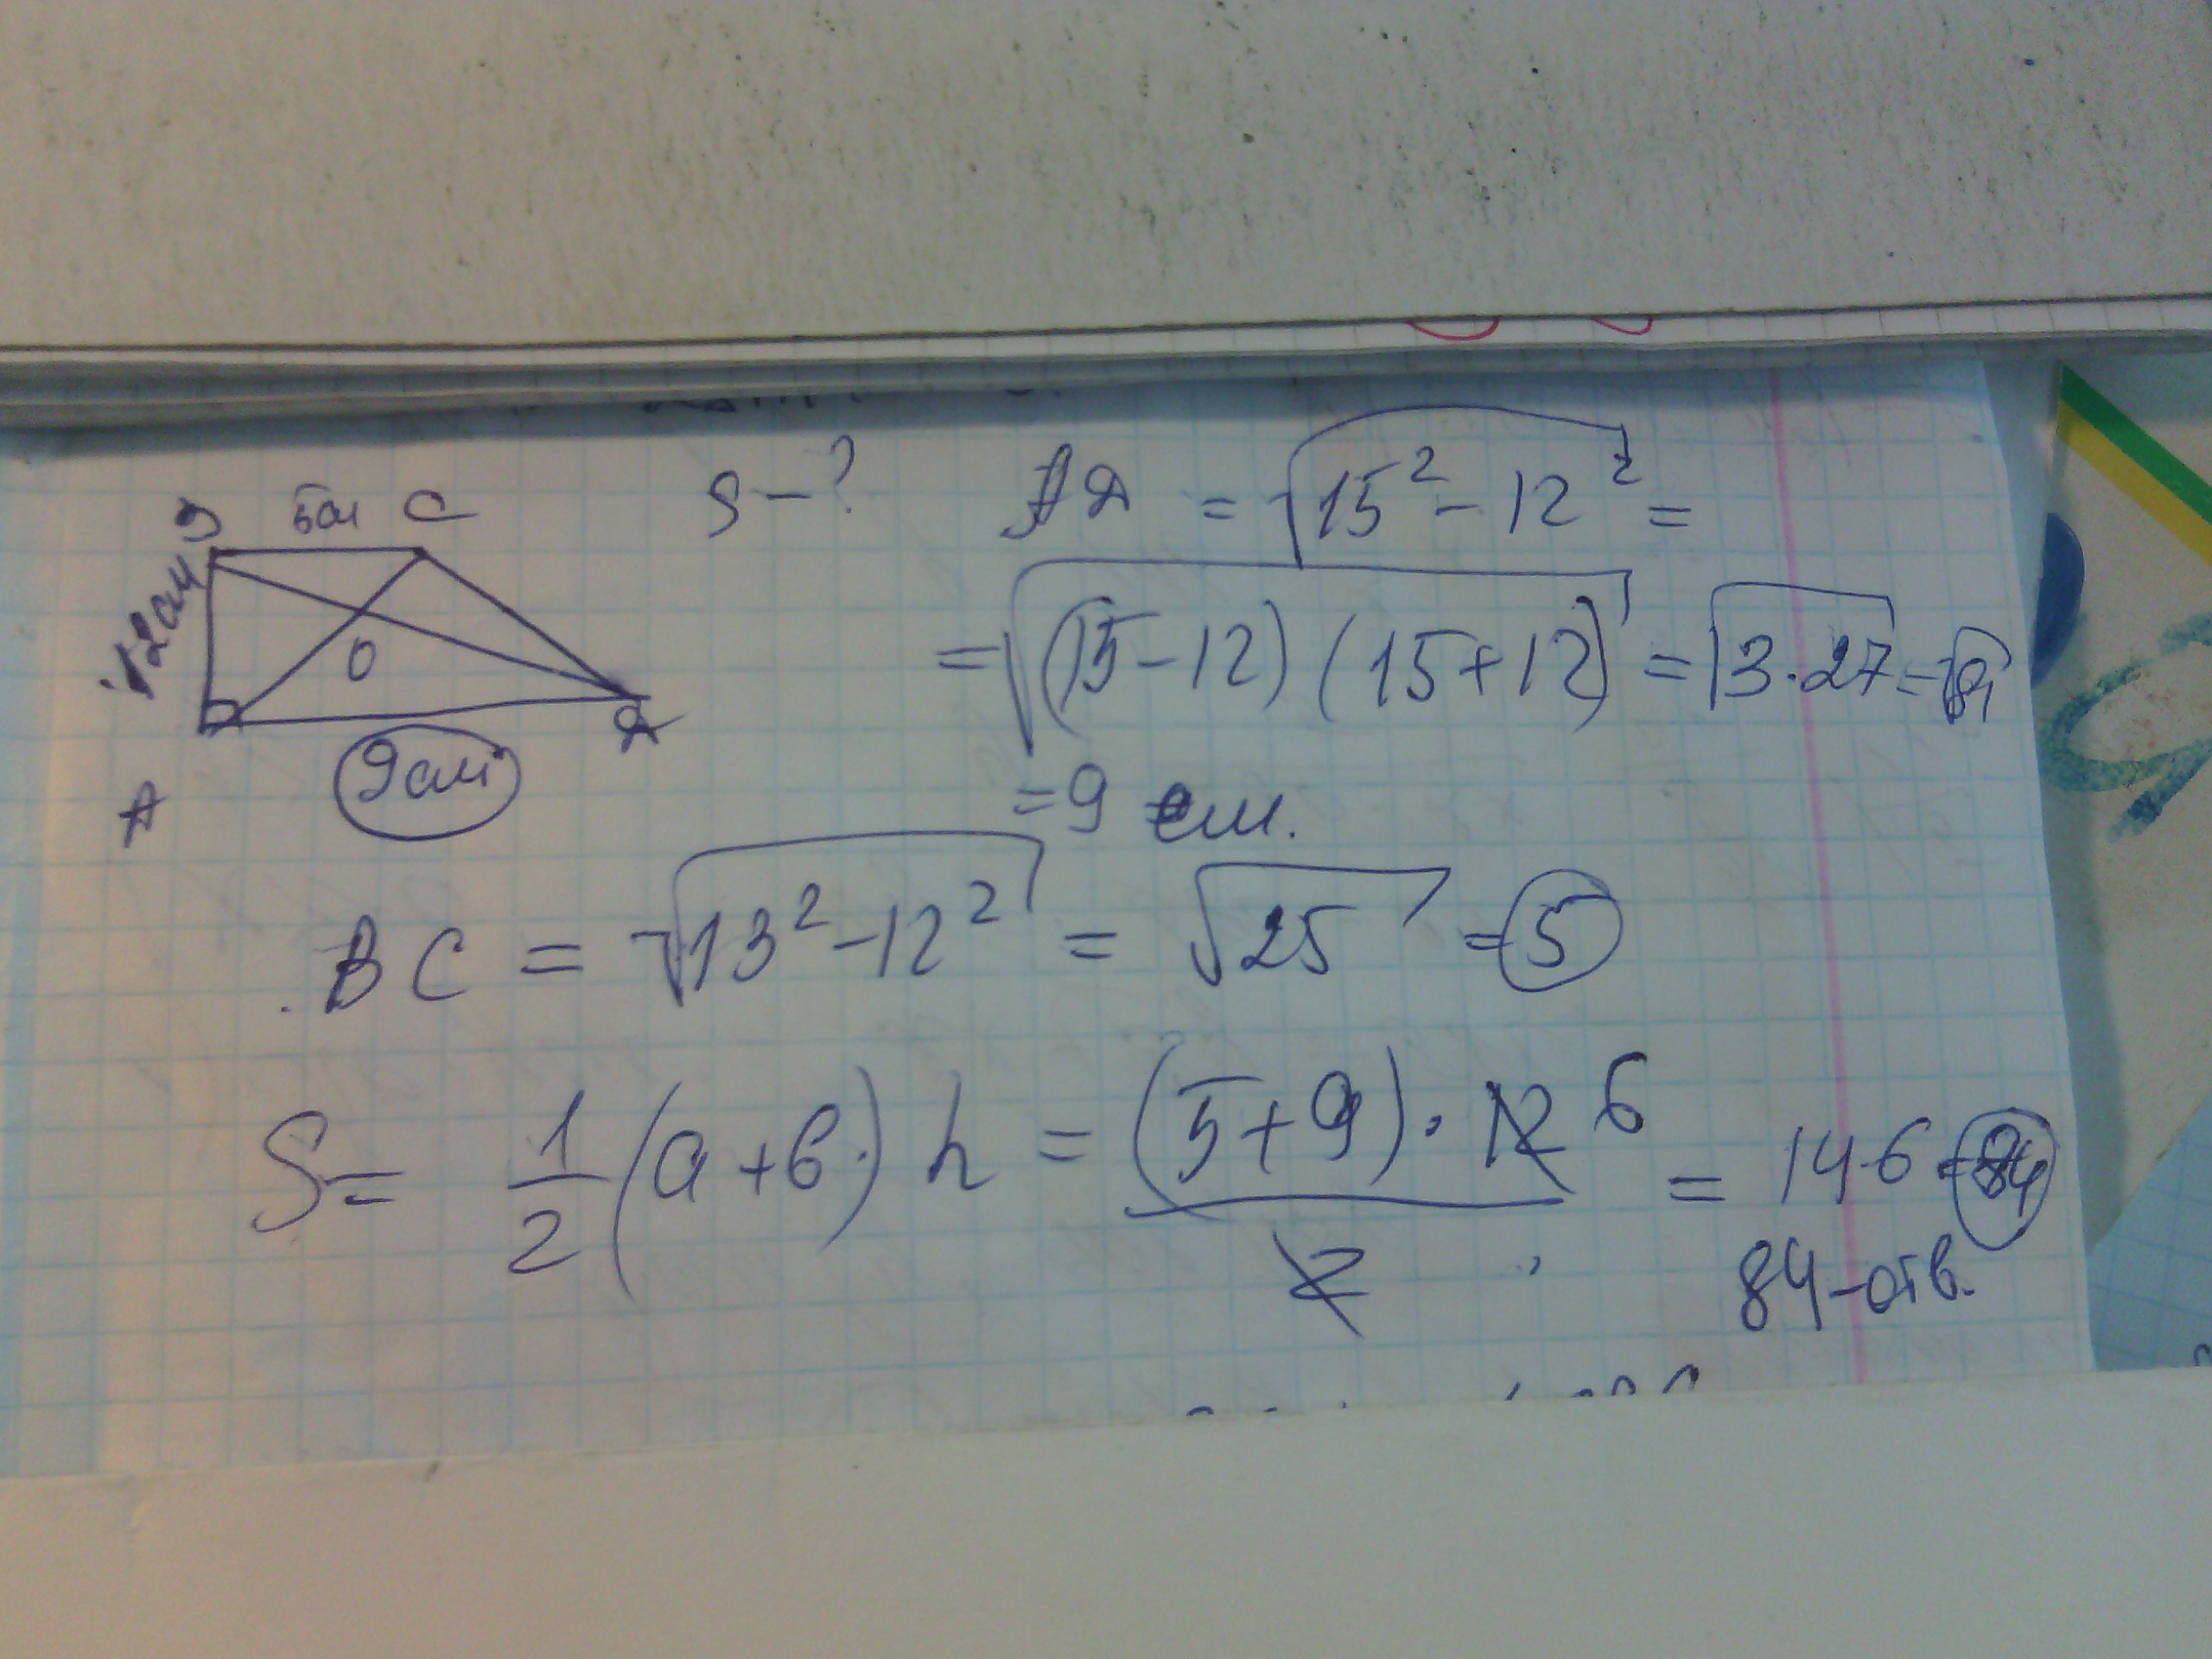 В 5см С
12см
О
9см
А
Д
S-?
АД = √15² - 12² =
= √(15-12)(15+12) = √3·27 = √81
= 9 см.
BC = √13² - 12² = √25 = 5
S = 1/2 (a + b) h = (5+9)·12 6 / 2 = 14·6 = 84
84-отв.